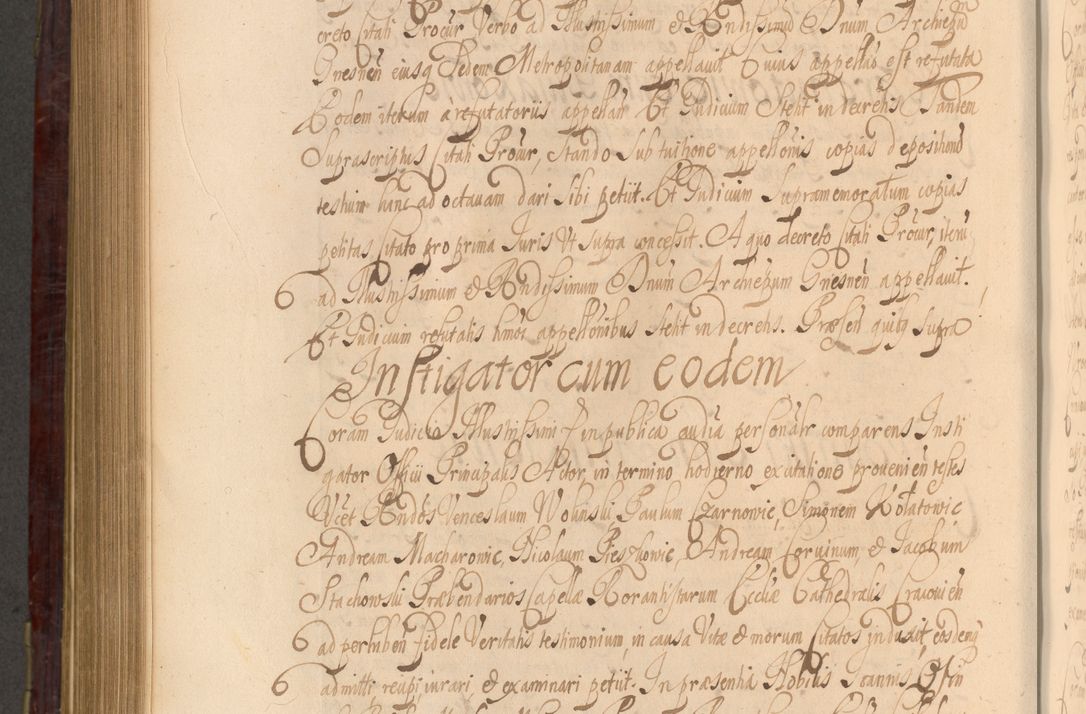 creto Citati Procur Verbo ad Illustrissimum & Rndissimū Dnum Archiepū
Gnesnen eiusq Sedem Metropolitanam appellavit Cuius appellatio est refutata
Eodem iterum a refutatoriis appellan Et Iudicium stetit in decretis Tandem
Suprascriptus Citati Procur, stando sub tuitione appellonis copias depositionū
testium hanc ad octavam dari sibi petiit. Et Iudicium supramemoratum copias
petitas Citato pro prima Iuris Vt supra concessit. A quo decreto Citati Procur, iterū
ad Illustrissimum & Rndissimum Dnum Archiepum Gnesnen appellavit.
Et Iudicium refutatis hmoi appellonibus stetit in decretis. Præsen quibq supra
Instigator cum eodem
Coram Iudicio Illustrissimi & in publica audia personalr comparens Insti
gator Officii Principalis Actor, in termino hodierno ex citatione provenien testes
Vcet Rndos Venceslaum Wolinski Paulum Czarnowic, Simonem Kołatowic
Andream Macharowic, Nicolaum Pieszkowic, Andream Corvinum, & Jacobum
Stachowski Præbendarios Capellæ Rorantistarum Eccliæ Cathedralis Cracovien
ad perhiben fidele Veritatis testimonium, in causa Vitæ & morum Citatos induxit, eosdemq
admitti recipi iurari & examinari petiit. In præsentia Nobilis Ioannis